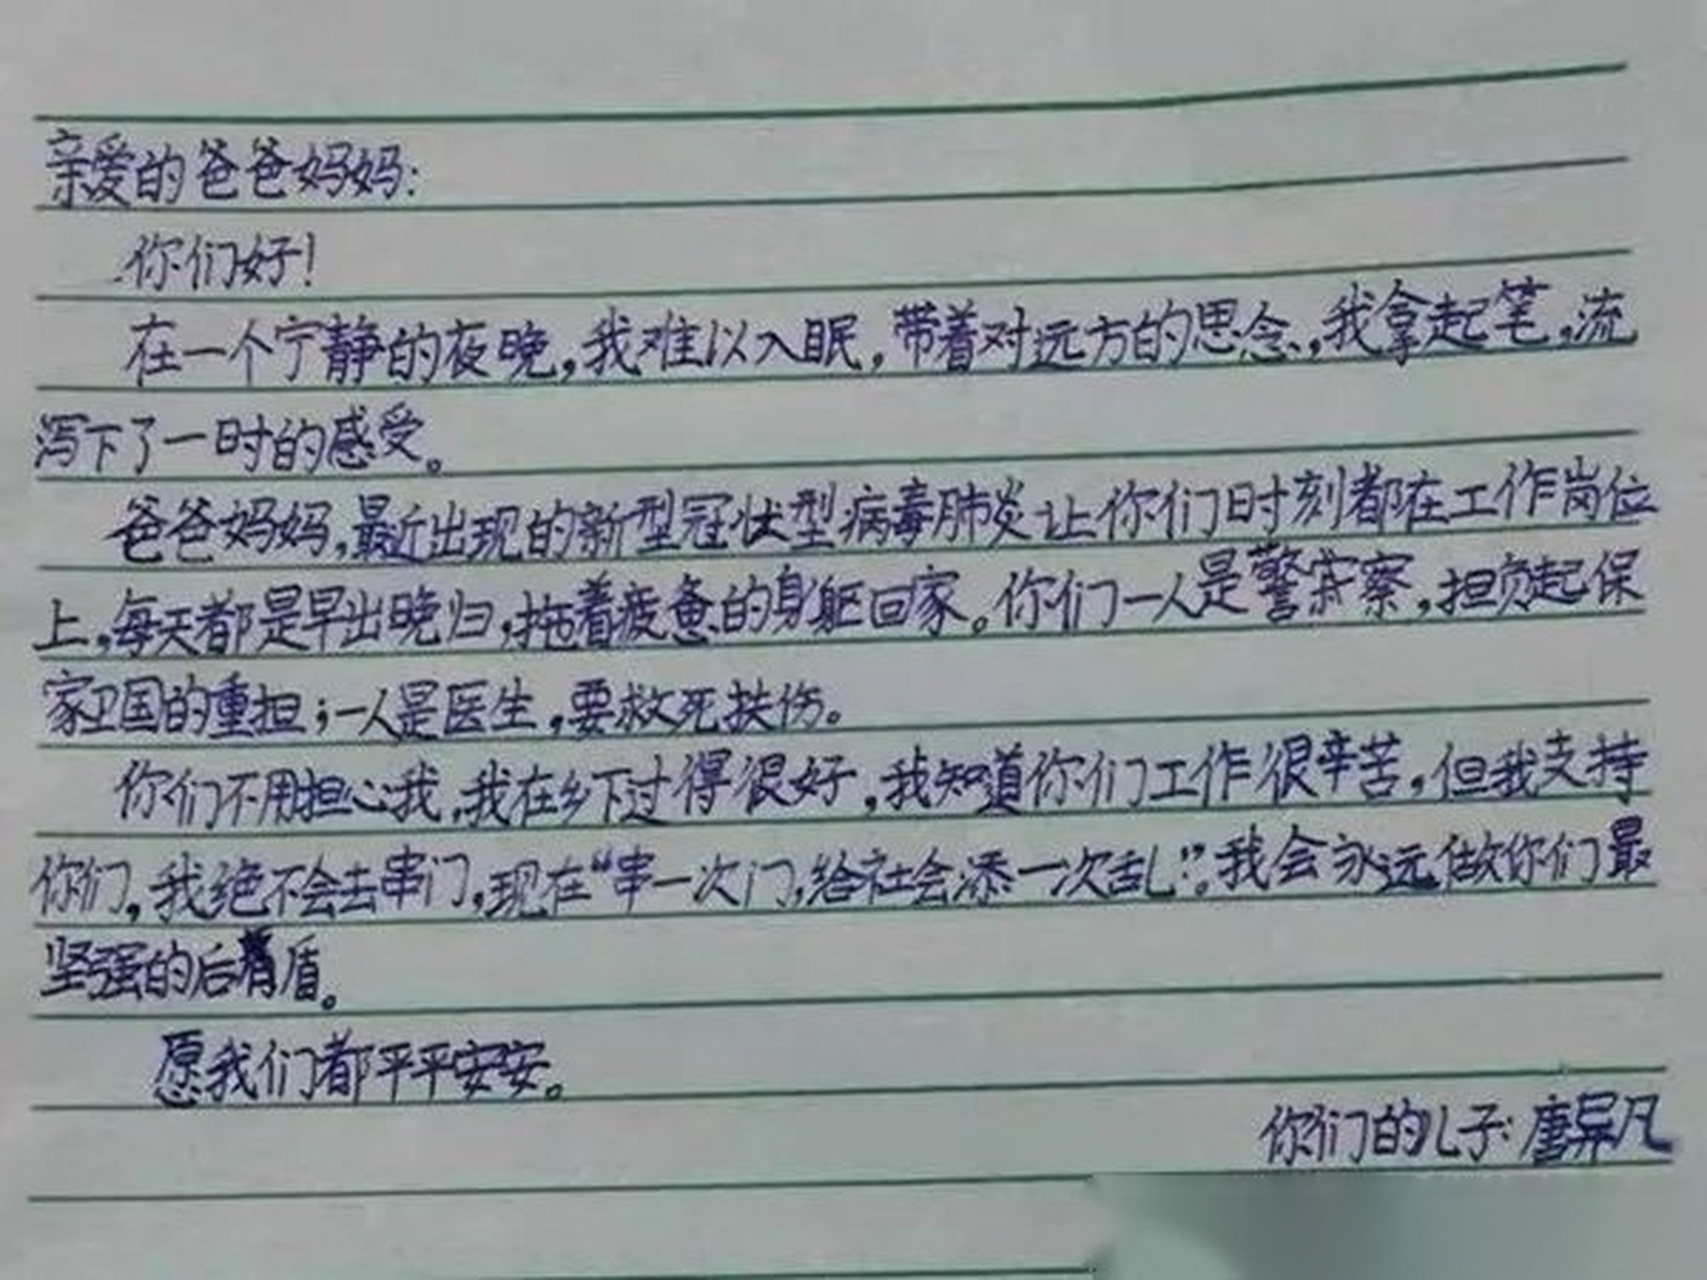 亲爱的爸爸妈妈:
你们好!
在一个宁静的夜晚,我难以入眠,带着对远方的思念,我拿起笔,流
泻下了一时的感受。
爸爸妈妈,最近出现的新型冠状型病毒肺炎让你们时刻都在工作岗位
上,每天都是早出晚归,拖着疲惫的身躯回家。你们一人是警察,担负起保
家卫国的重担;一人是医生,要救死扶伤。
你们不用担心我,我在乡下过得很好,我知道你们工作很辛苦,但我支持
你们,我绝不会去串门,现在“串一次门,给社会添一次乱!”。我会永远做你们最
坚强的后盾。
愿我们都平平安安。
你们的儿子:唐异凡